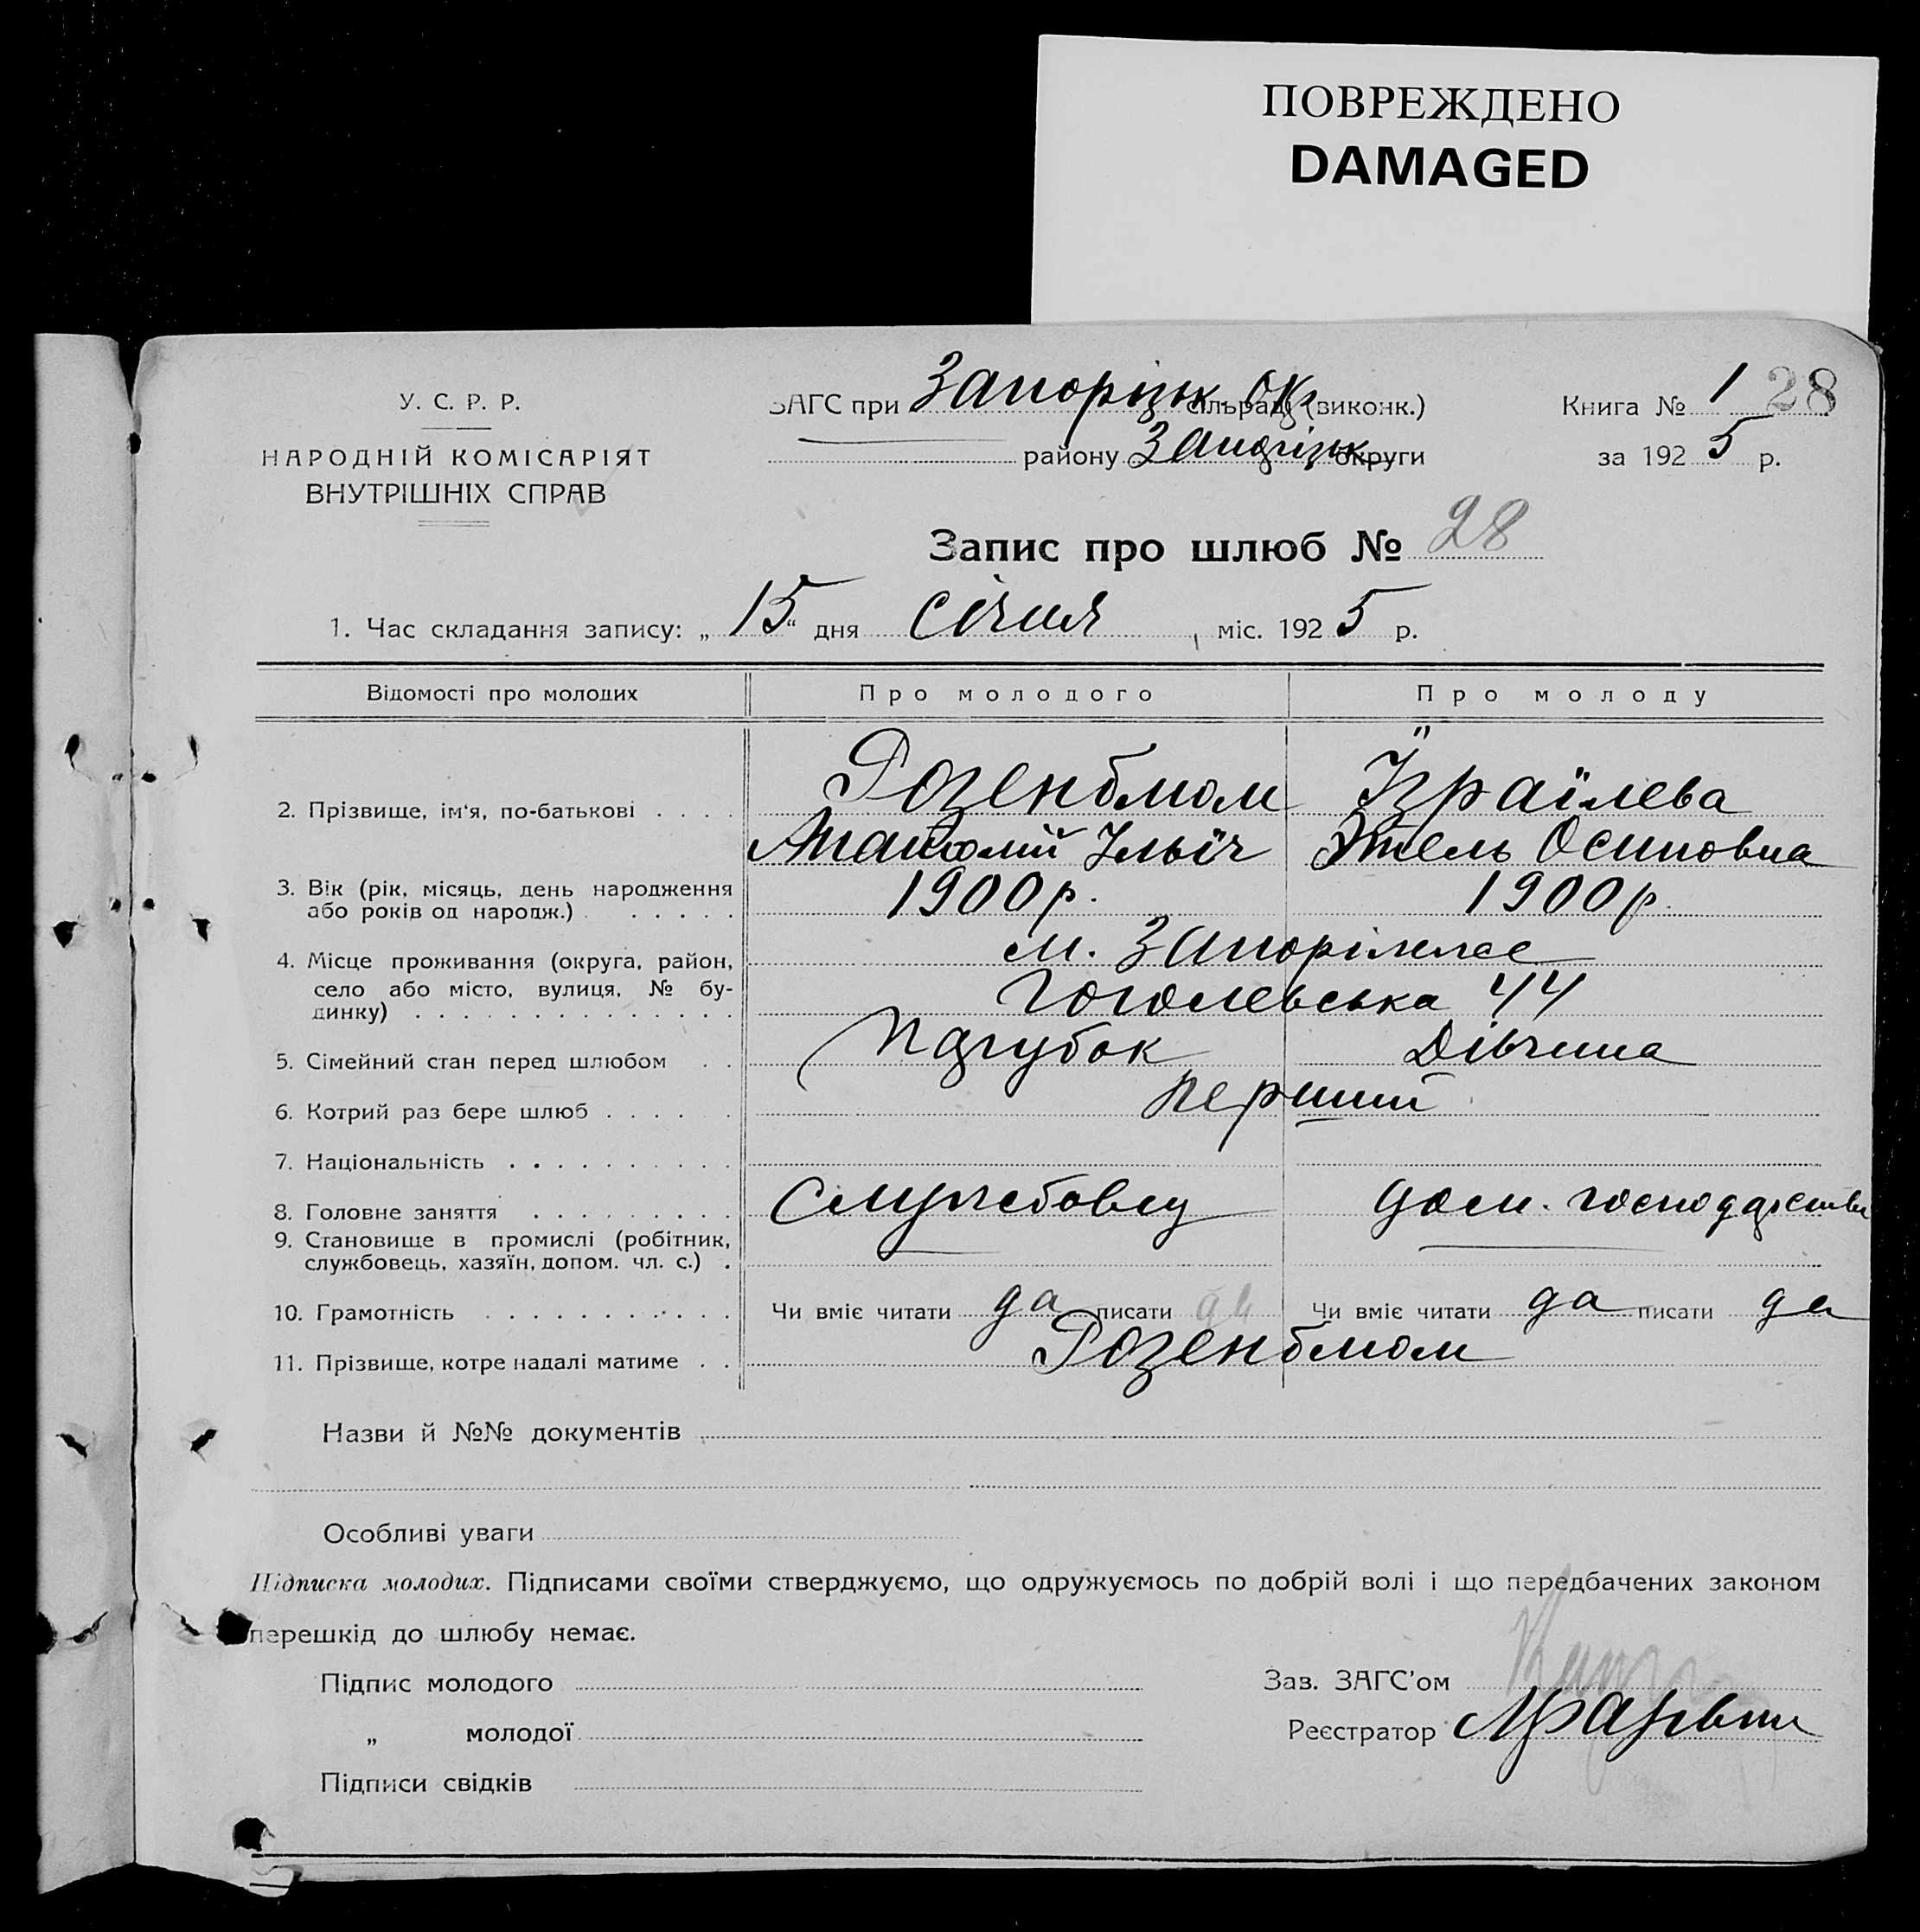 ПОВРЕЖДЕНО
DAMAGED
У. С. Р. Р.
НАРОДНІЙ КОМІСАРІЯТ
ВНУТРІШНІХ СПРАВ
ЗАГС при Запорізьк. Окр сільраді (виконк.)
району Запорізьк. округи
Книга № 1 28
за 1925 р.
Запис про шлюб № 28
1. Час складання запису: „15“ дня січня, міс. 1925 р.
Відомості про молодих Про молодого Про молоду
2. Прізвище, ім'я, по-батькові . . . . Розенблюм Ізраїлева
Анатолій Ільїч Этель Осиповна
3. Вік (рік, місяць, день народження 1900 р. 1900 р.
або років од народж.) . . . . . .
4. Місце проживання (округа, район, м. Запоріжжє
село або місто, вулиця, № бу-
динку) . . . . . . . . . . . . . . Гоголевська 44
5. Сімейний стан перед шлюбом . . Парубок Дівчина
6. Котрий раз бере шлюб . . . . . перший
7. Національність . . . . . . . . . .
8. Головне заняття . . . . . . . . . Службовец дом. господарство
9. Становище в промислі (робітник,
службовець, хазяїн, допом. чл. с.) .
10. Грамотність . . . . . . . . . . . Чи вміє читати да писати да Чи вміє читати да писати да
11. Прізвище, котре надалі матиме . . Розенблюм
Назви й №№ документів
Особливі уваги
Підписка молодих. Підписами своїми стверджуємо, що одружуємось по добрій волі і що передбачених законом
перешкід до шлюбу немає.
Підпис молодого Зав. ЗАГС'ом
„ молодої Реєстратор
Підписи свідків